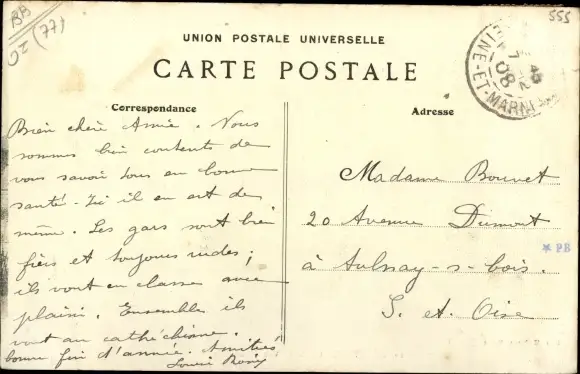 BB
(77)
555
UNION POSTALE UNIVERSELLE
CARTE POSTALE
Correspondance
Adresse
INE-ET-MARN
08
Bien chère Amie. Nous
sommes bien contents de
vous savoir tous en bonne
santé - Ici il en est de
même. Les gars sont bien
fiers et toujours rudes;
ils vont en classe avec
plaisir. Ensemble ils
vont au cathéchisme.
bonne fin d'année. Amitiés
Louise
Madame Bouvet
20 Avenue Dumont
à Aulnay-s-bois.
S. et Oise
* PB